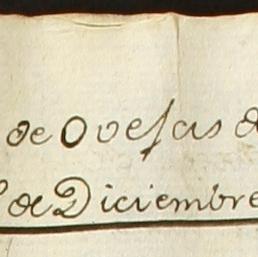 de Ovejas
de Diciembre